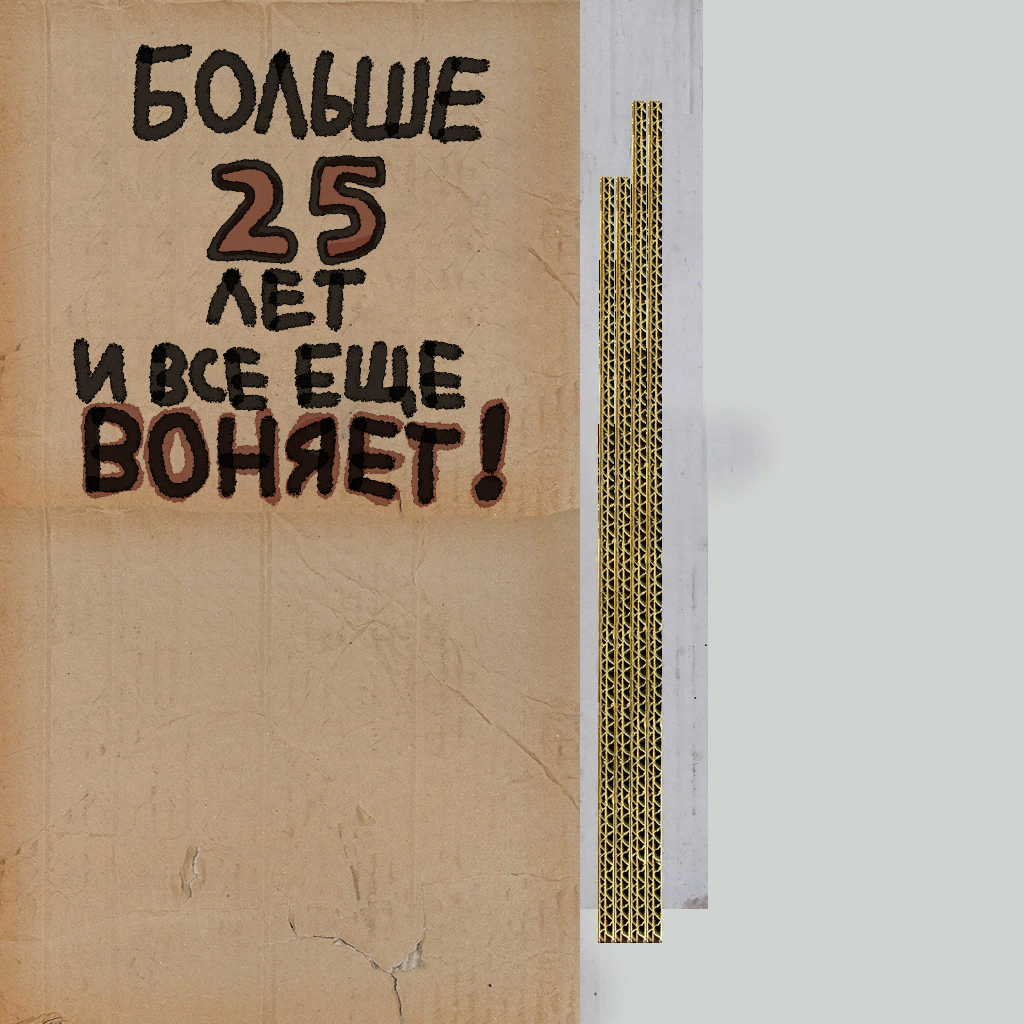 БОЛЬШЕ
25
ЛЕТ
И ВСЕ ЕЩЕ
ВОНЯЕТ!